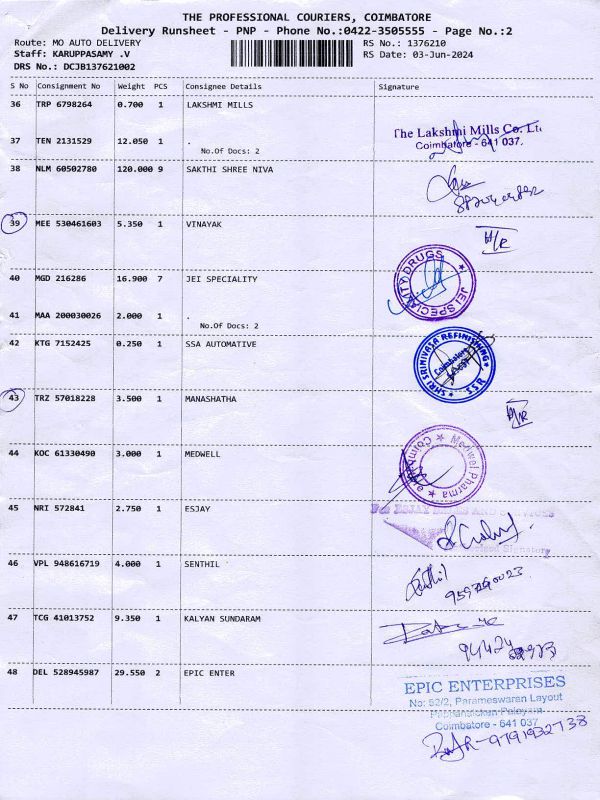 THE PROFESSIONAL COURIERS, COIMBATORE
Delivery Runsheet - PNP - Phone No.:0422-3505555 - Page No.:2
Route: MO AUTO DELIVERY RS No.: 1376210
Staff: KARUPPASAMY .V RS Date: 03-Jun-2024
DRS No.: DCJB137621002
S No Consignment No Weight PCS Consignee Details Signature
36 TRP 6798264 0.700 1 LAKSHMI MILLS
The Lakshmi Mills Co. Lt
Coimbatore - 641 037.
37 TEN 2131529 12.050 1 .
No.Of Docs: 2
38 NLM 60502780 120.000 9 SAKTHI SHREE NIVA
39 MEE 530461603 5.350 1 VINAYAK
H/R
40 MGD 216286 16.900 7 JEI SPECIALITY
JEI SPECIALITY DRUGS
41 MAA 200030026 2.000 1 .
No.Of Docs: 2
42 KTG 7152425 0.250 1 SSA AUTOMATIVE
SHRI SRINIVASA REFINISHING
Coimbatore
SSR
43 TRZ 57018228 3.500 1 MANASHATHA
H/R
44 KOC 61330490 3.000 1 MEDWELL
Medwel Pharma
45 NRI 572841 2.750 1 ESJAY
For ESJAY AND SERVICES
Signatory
46 VPL 948616719 4.000 1 SENTHIL
Senthil
47 TCG 41013752 9.350 1 KALYAN SUNDARAM
94424
48 DEL 528945987 29.550 2 EPIC ENTER
EPIC ENTERPRISES
No: 52/2, Parameswaran Layout
Pappanaicken Palayam
Coimbatore - 641 037
9791932738